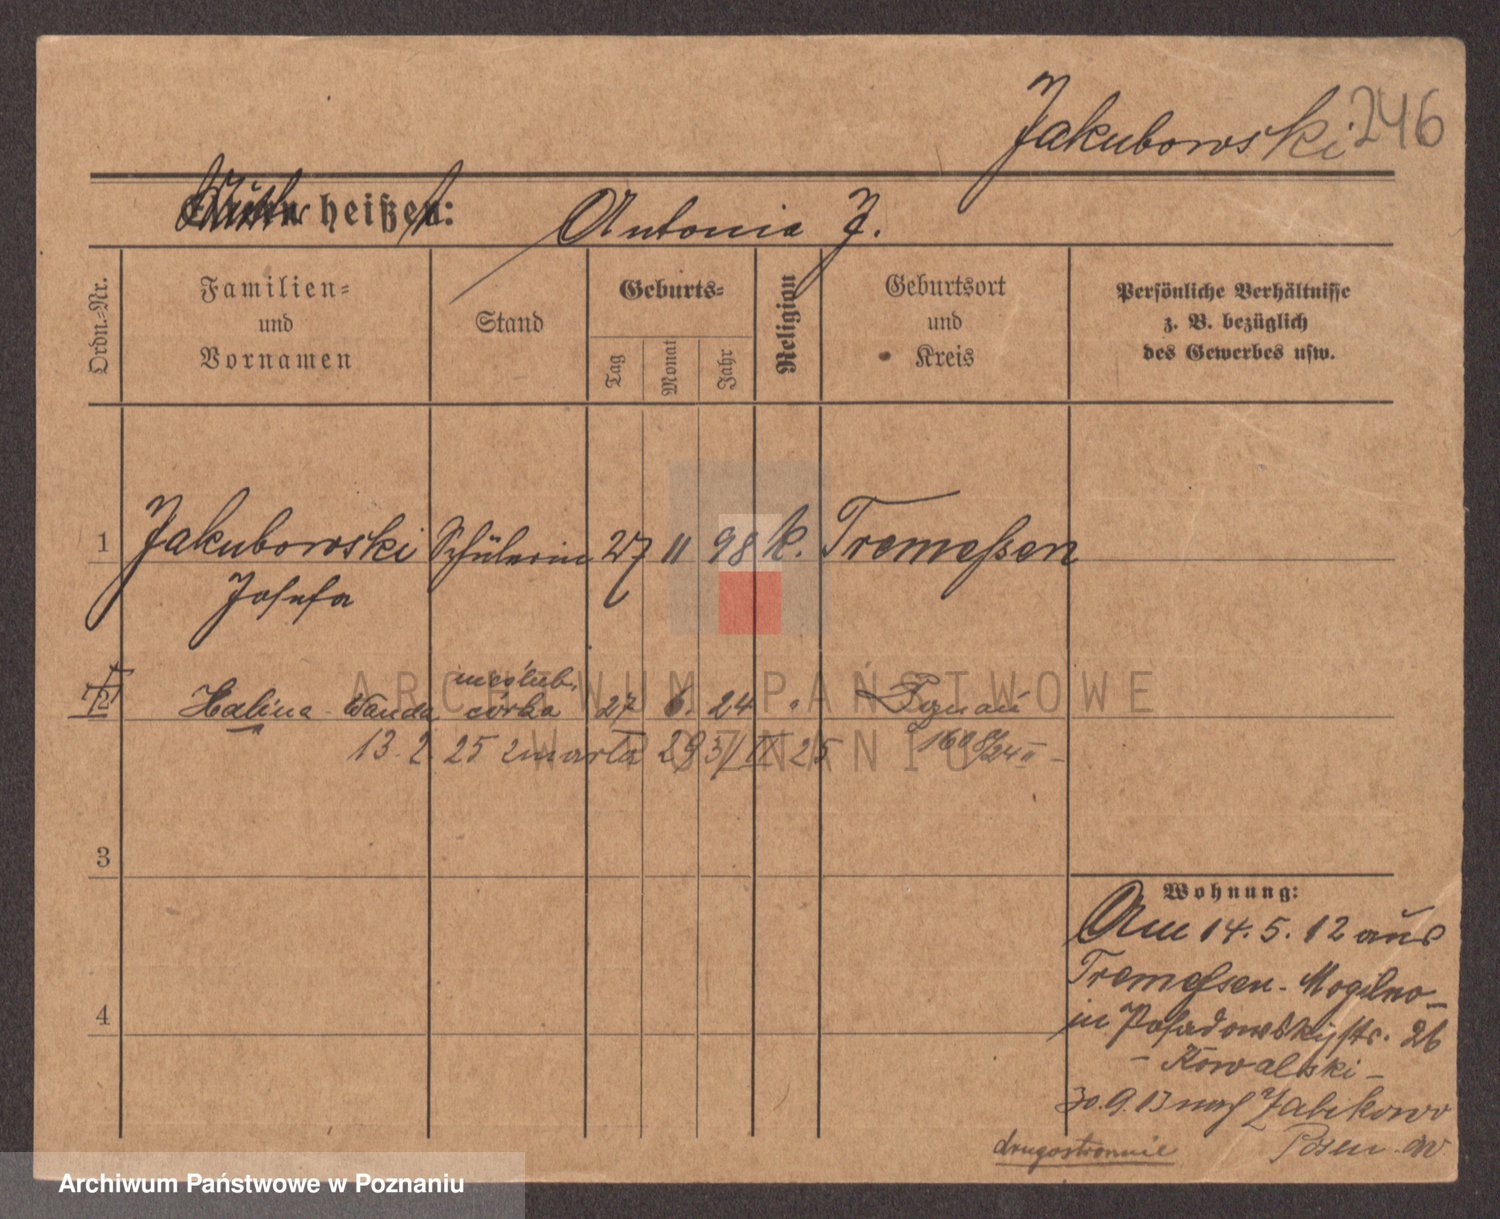 Jakubowski 246
Mutter heißen:
Antonia J.
Ordn.-Nr.
Familien-
und
Vornamen
Stand
Geburts-
Tag
Monat
Jahr
Religion
Geburtsort
und
Kreis
Persönliche Verhältnisse
z. B. bezüglich
des Gewerbes usw.
1 Jakubowski Schülerin 27 11 98 k. Tremessen
Josefa
nieślub.
2 Halina Wanda córka 27 6. 24 " Poznań
13. 2. 25 zmarła 293/II 25
1608/24 II
3
4
Wohnung:
Am 14. 5. 12 aus
Tremessen - Mogilno -
in Posadowskystr. 26
- Kowalski -
30. 9. 13 nach Zabikowo
Posen
drugostronnie
ARCHIWUM PAŃSTWOWE
W POZNANIU
Archiwum Państwowe w Poznaniu